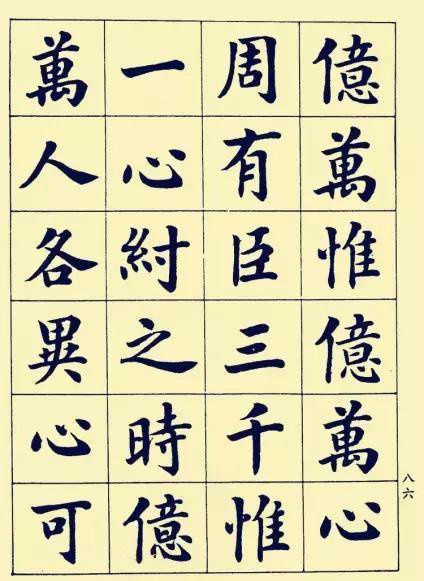 億萬惟億萬心
周有臣三千惟
一心紂之時億
萬人各異心可
八六